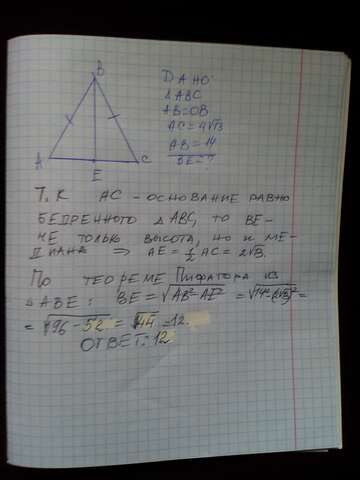 B
A
C
E
ДАНО
△ABC
AB=OB
AC=4√13
AB=14
BE=?
Т.К AC - ОСНОВАНИЕ РАВНО
БЕДРЕННОГО △ABC, ТО BE-
НЕ ТОЛЬКО ВЫСОТА, НО И МЕ-
ДИАНА ⇒ AE = 1/2 AC = 2√13.
ПО ТЕОРЕМЕ ПИФАГОРА ИЗ
△ABE: BE = √AB²-AE² = √14²-(2√13)² =
= √196-52 = √144 = 12.
ОТВЕТ: 12